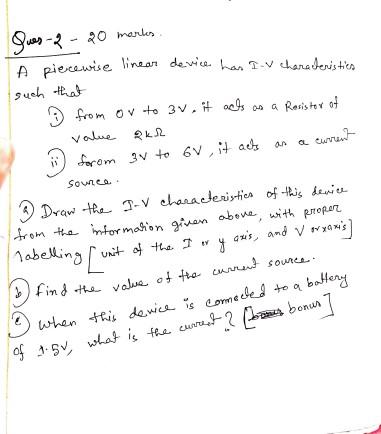 Ques-2 - 20 marks.
A piecewise linear device has I-V characteristics
such that
i) from 0V to 3V, it acts as a Resistor of
value 2kΩ
ii) from 3V to 6V, it acts as a current
source.
a) Draw the I-V characteristics of this device
from the information given above, with proper
labelling [unit of the I or y axis, and V or x axis]
b) Find the value of the current source.
c) When this device is connected to a battery
of 1.5V, what is the current? [bonus]